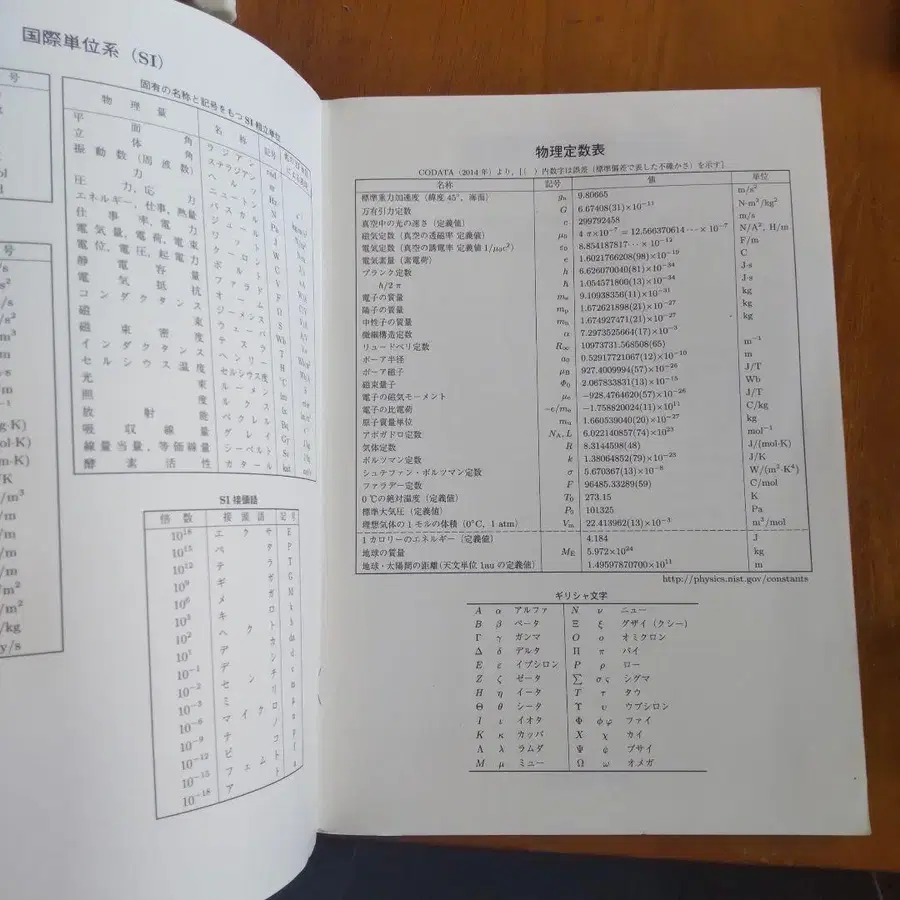 国際単位系 (SI)
固有の名称と記号をもつ SI 組立単位
物理量 名称 記号
平面角 ラジアン rad
立体角 ステラジアン sr
振動数 (周波数) ヘルツ Hz
力 ニュートン N
圧力, 応力 パスカル Pa
エネルギー, 仕事, 熱量 ジュール J
仕事率, 電力 ワット W
電気量, 電荷, 電束 クーロン C
電位, 電圧, 起電力 ボルト V
静電容量 ファラド F
電気抵抗 オーム Ω
コンダクタンス ジーメンス S
磁束 ウェーバ Wb
磁束密度 テスラ T
インダクタンス ヘンリー H
セルシウス温度 セルシウス度 ℃
光束 ルーメン lm
照度 ルクス lx
放射能 ベクレル Bq
吸収線量 グレイ Gy
線量当量, 等価線量 シーベルト Sv
酵素活性 カタール kat
SI 接頭語
倍数 接頭語 記号
10¹⁸ エクサ E
10¹⁵ ペタ P
10¹² テラ T
10⁹ ギガ G
10⁶ メガ M
10³ キロ k
10² ヘクト h
10¹ デカ da
10⁻¹ デシ d
10⁻² センチ c
10⁻³ ミリ m
10⁻⁶ マイクロ μ
10⁻⁹ ナノ n
10⁻¹² ピコ p
10⁻¹⁵ フェムト f
10⁻¹⁸ アト a
物理定数表
CODATA (2014 年) より, [( ) 内数字は誤差 (標準偏差で表した不確かさ) を示す]
名称 記号 値 単位
標準重力加速度 (緯度 45°, 海面) gₙ 9.80665 m/s²
万有引力定数 G 6.67408(31)×10⁻¹¹ N·m²/kg²
真空中の光の速さ (定義値) c 299792458 m/s
磁気定数 (真空の透磁率 定義値) μ₀ 4π×10⁻⁷ = 12.566370614···×10⁻⁷ N/A², H/m
電気定数 (真空の誘電率 定義値 1/μ₀c²) ε₀ 8.854187817···×10⁻¹² F/m
電気素量 (素電荷) e 1.6021766208(98)×10⁻¹⁹ C
プランク定数 h 6.626070040(81)×10⁻³⁴ J·s
h/2π ħ 1.054571800(13)×10⁻³⁴ J·s
電子の質量 mₑ 9.10938356(11)×10⁻³¹ kg
陽子の質量 mₚ 1.672621898(21)×10⁻²⁷ kg
中性子の質量 mₙ 1.674927471(21)×10⁻²⁷ kg
微細構造定数 α 7.2973525664(17)×10⁻³
リュードベリ定数 R∞ 10973731.568508(65) m⁻¹
ボーア半径 a₀ 0.52917721067(12)×10⁻¹⁰ m
ボーア磁子 μB 927.4009994(57)×10⁻²⁶ J/T
磁束量子 Φ₀ 2.067833831(13)×10⁻¹⁵ Wb
電子の磁気モーメント μₑ −928.4764620(57)×10⁻²⁶ J/T
電子の比電荷 −e/mₑ −1.758820024(11)×10¹¹ C/kg
原子質量単位 mᵤ 1.660539040(20)×10⁻²⁷ kg
アボガドロ定数 NA, L 6.022140857(74)×10²³ mol⁻¹
気体定数 R 8.3144598(48) J/(mol·K)
ボルツマン定数 k 1.38064852(79)×10⁻²³ J/K
シュテファン・ボルツマン定数 σ 5.670367(13)×10⁻⁸ W/(m²·K⁴)
ファラデー定数 F 96485.33289(59) C/mol
0℃の絶対温度 (定義値) T₀ 273.15 K
標準大気圧 (定義値) P₀ 101325 Pa
理想気体の 1 モルの体積 (0℃, 1 atm) Vm 22.413962(13)×10⁻³ m³/mol
1 カロリーのエネルギー (定義値) 4.184 J
地球の質量 ME 5.972×10²⁴ kg
地球・太陽間の距離 (天文単位 1au の定義値) 1.49597870700×10¹¹ m
http://physics.nist.gov/constants
ギリシャ文字
Α α アルファ Ν ν ニュー
Β β ベータ Ξ ξ グザイ (クシー)
Γ γ ガンマ Ο ο オミクロン
Δ δ デルタ Π π パイ
Ε ε イプシロン Ρ ρ ロー
Ζ ζ ゼータ Σ σ ς シグマ
Η η イータ Τ τ タウ
Θ θ シータ Υ υ ウプシロン
Ι ι イオタ Φ φ φ ファイ
Κ κ カッパ Χ χ カイ
Λ λ ラムダ Ψ ψ プサイ
Μ μ ミュー Ω ω オメガ